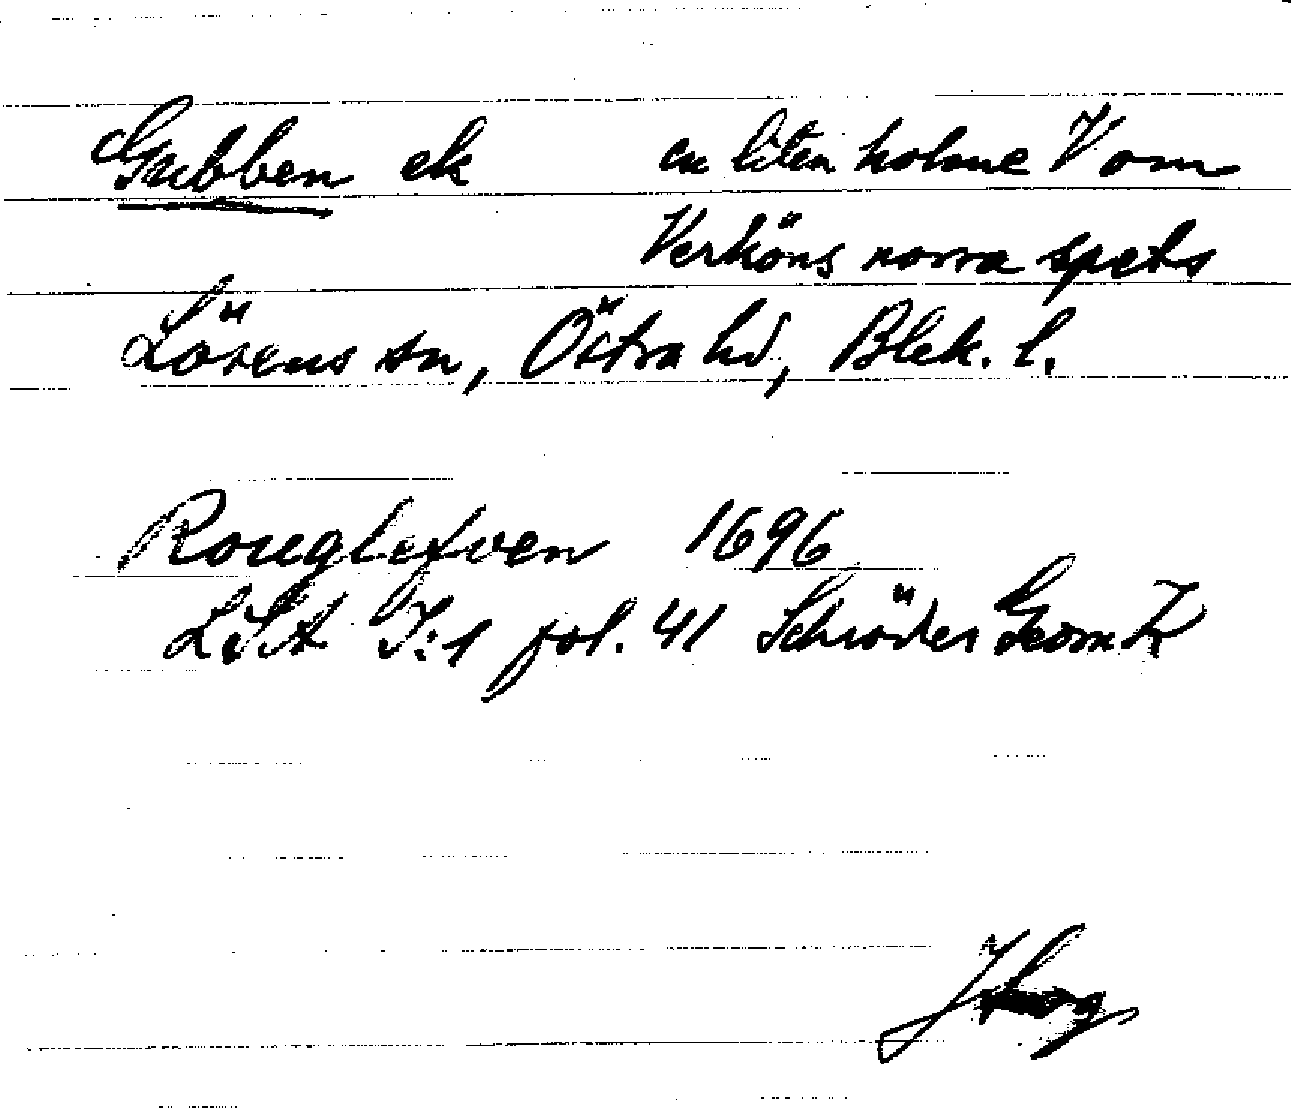 Gubben ek en liten holme V om
Verköns norra spets
Lösens sn, Östra hd, Blek. l.
1696
LSA I:1 fol. 41 Schröder Geom. Kr